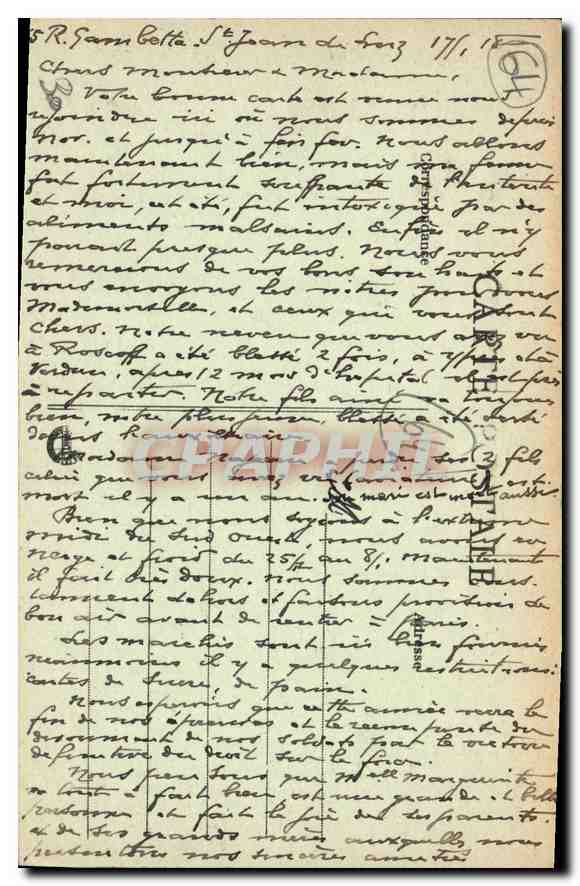 5 R. Gambetta. St Jean de Luz 17/1 18
64
Chers Monsieur & Madame,
Votre bonne carte est venue nous
rejoindre ici où nous sommes depuis
Nov. et jusqu'à fin fev. Nous allons
maintenant bien, mais ma femme
fut fortement souffrante de l'entérite
et moi, cet été, fut intoxiqué par des
aliments malsains. Enfin il n'y
parait presque plus. Nous vous
remercions de vos bons souhaits et
vous envoyons les nôtres pour vous
Mademoiselle, et ceux qui vous sont
chers. Notre neveu que vous avez vu
à Roscoff a été blessé 2 fois, à Ypres et à
Verdun, après 12 mois d'hôpital il est prêt
à repartir. Notre fils ainé va toujours
bien, notre plus jeune, blessé a été versé
dans l'auxiliaire.
Madame a perdu ses 2 fils
celui que vous avez vu est
mort il y a un an. Le mari est mort aussi
Bien que nous soyons à l'extrême
midi du Sud Ouest, nous avons eu
neige et froid du 25/12 au 8/1. Maintenant
il fait très doux. Nous sommes cons-
tamment dehors et faisons provision de
bon air avant de rentrer à Paris.
Les marchés sont ici bien fournis
néanmoins il y a quelques restrictions:
cartes de sucre, de pain.
Nous espérons que cette année verra la
fin de nos épreuves et la récompense du
dévouement de nos soldats par la victoire
définitive du droit sur la force.
Nous pensons que Melle Marguerite
va tout à fait bien est une grande et belle
personne et fait la joie de ses parents
et de ses grands mères auxquelles nous
présentons nos sincères amitiés
CARTE POSTALE
Correspondance
Adresse
CPARAMA